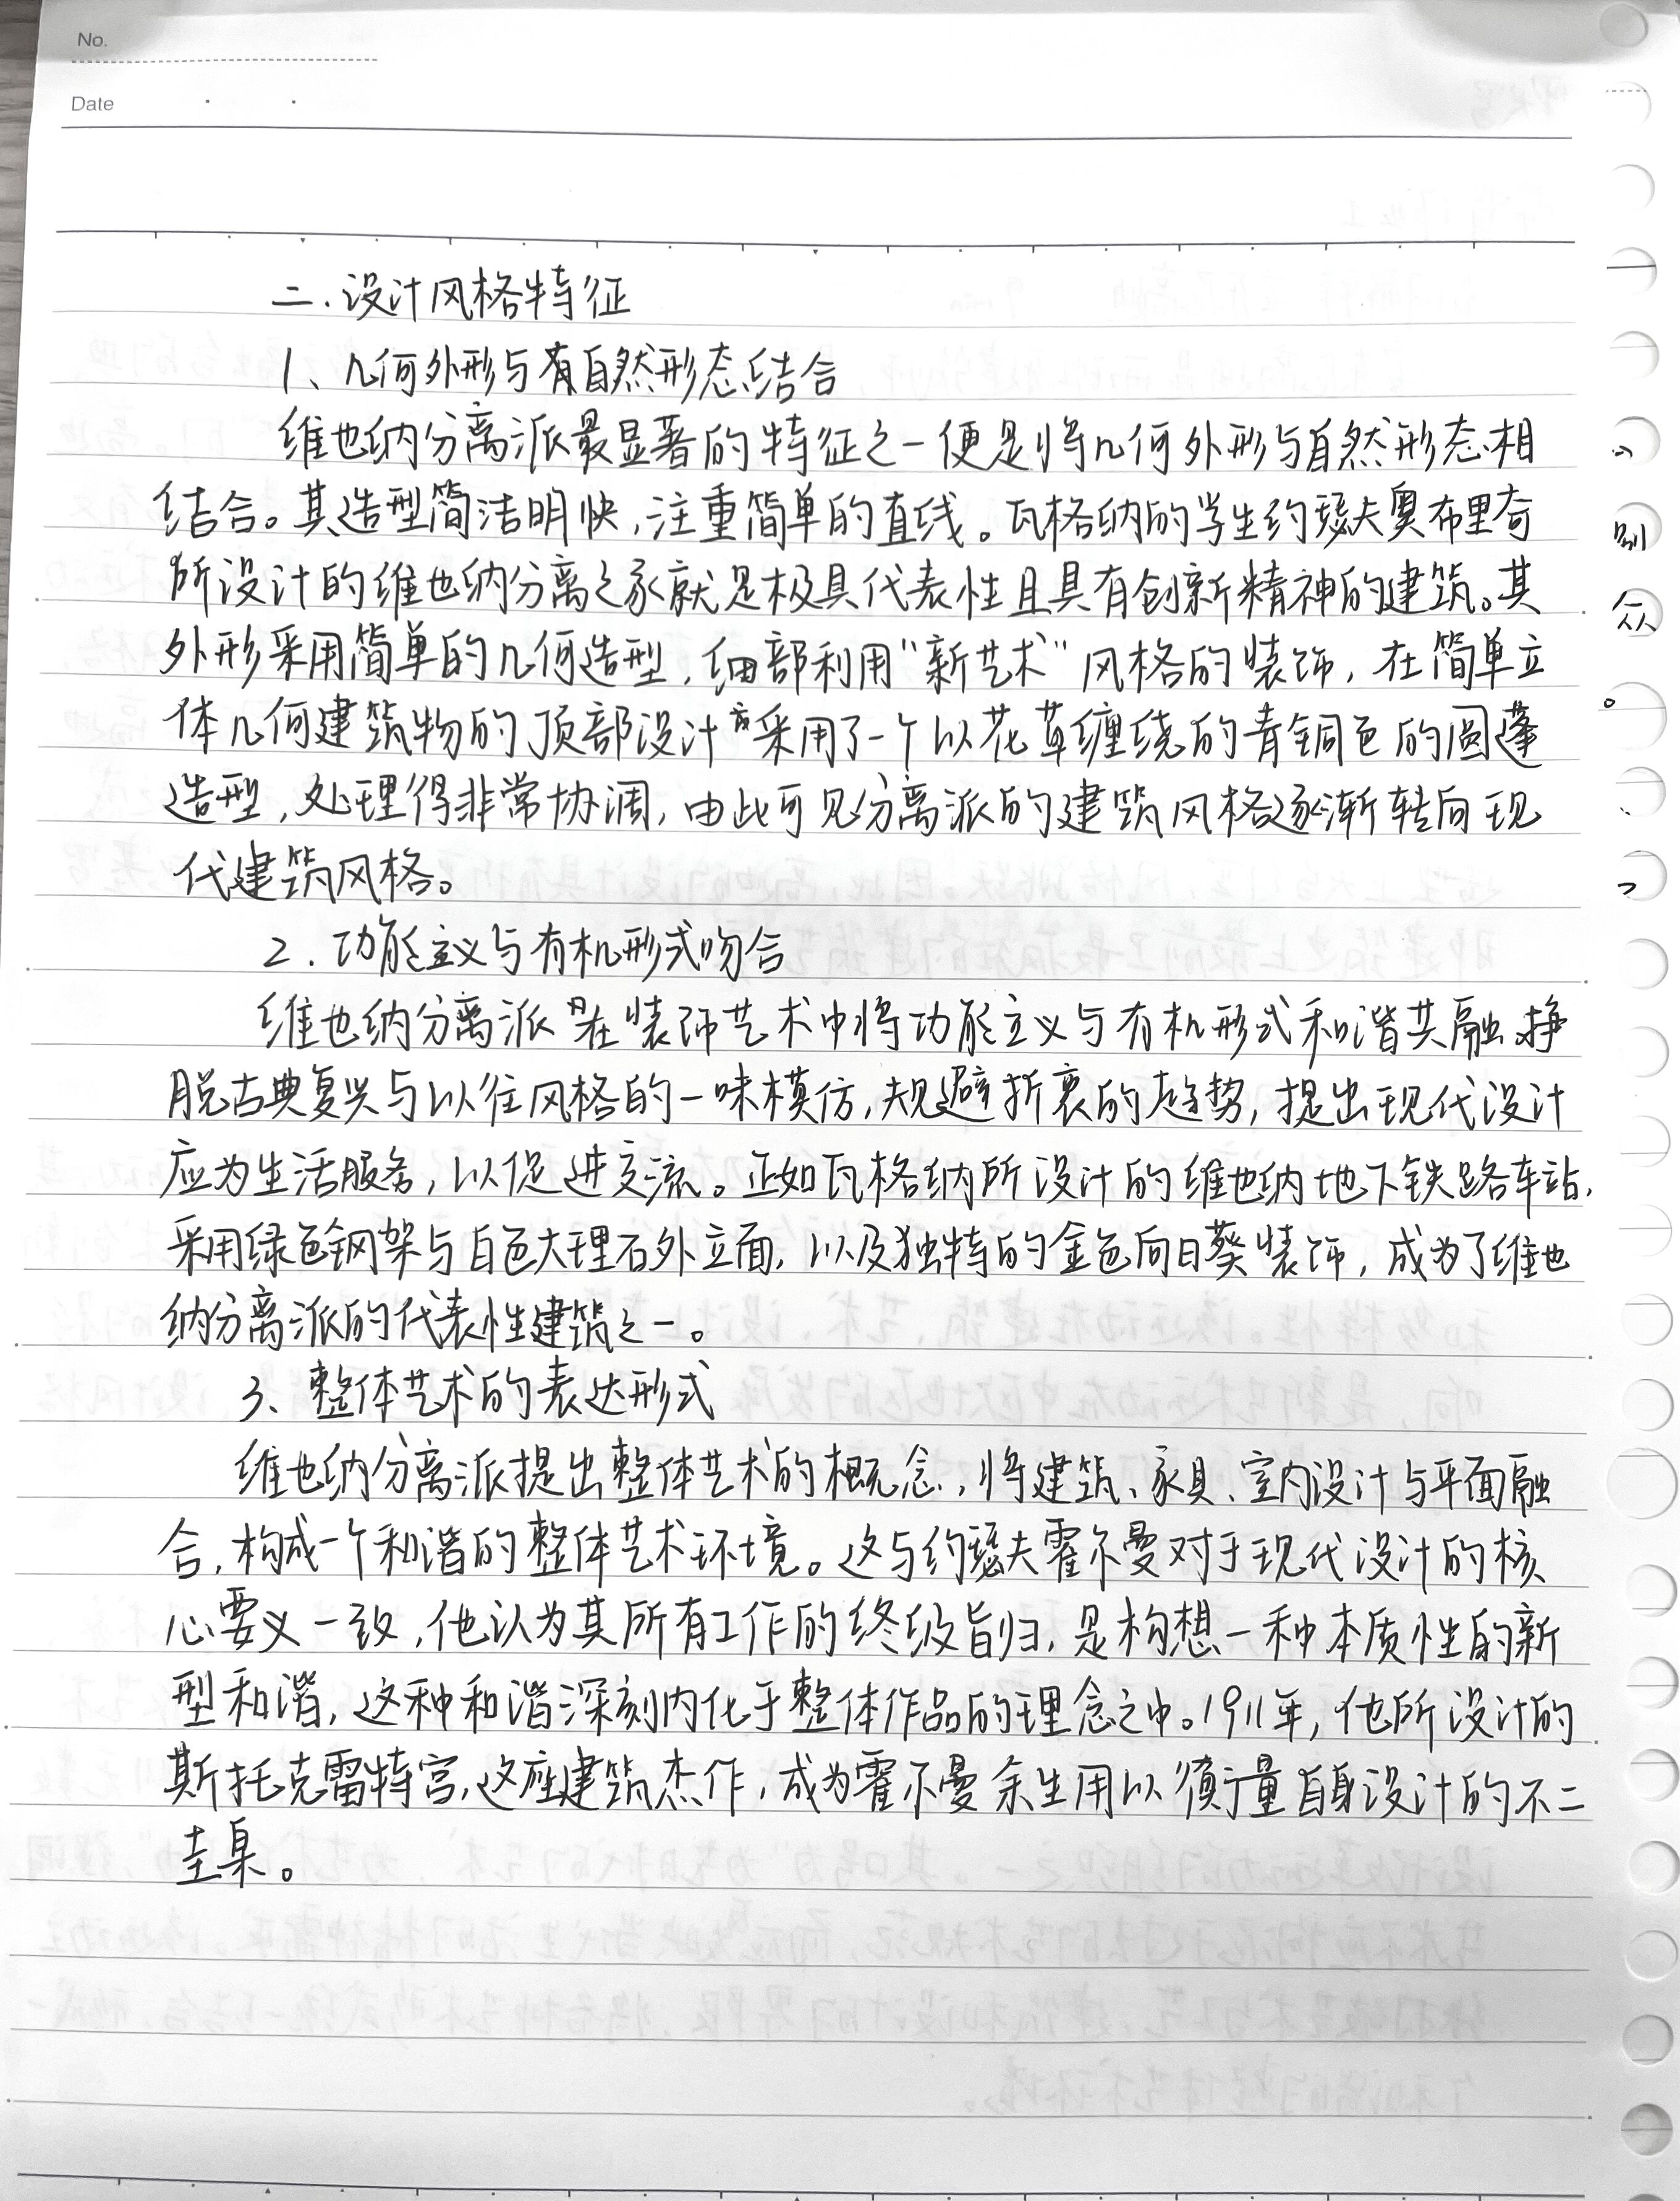 No.
Date
二.设计风格特征
1、几何外形与自然形态结合
维也纳分离派最显著的特征之一便是将几何外形与自然形态相
结合。其造型简洁明快,注重简单的直线。瓦格纳的学生约瑟夫奥布里奇
所设计的维也纳分离之家就是极具代表性且具有创新精神的建筑。其
外形采用简单的几何造型,细部利用“新艺术”风格的装饰,在简单立
体几何建筑物的顶部设计采用了一个以花草缠绕的青铜色的圆蓬
造型,处理得非常协调,由此可见分离派的建筑风格逐渐转向现
代建筑风格。
2.功能主义与有机形式吻合
维也纳分离派在装饰艺术中将功能主义与有机形式和谐共融,挣
脱古典复兴与以往风格的一味模仿,规避折衷的趋势,提出现代设计
应为生活服务,以促进交流。正如瓦格纳所设计的维也纳地下铁路车站,
采用绿色钢架与白色大理石外立面,以及独特的金色向日葵装饰,成为了维也
纳分离派的代表性建筑之一。
3、整体艺术的表达形式
维也纳分离派提出整体艺术的概念,将建筑、家具、室内设计与平面融
合,构成一个和谐的整体艺术环境。这与约瑟夫霍尔曼对于现代设计的核
心要义一致,他认为其所有工作的终级旨归,是构想一种本质性的新
型和谐,这种和谐深刻内化于整体作品的理念之中。1911年,他所设计的
斯托克雷特宫,这座建筑杰作,成为霍尔曼余生用以衡量自身设计的不二
圭臬。